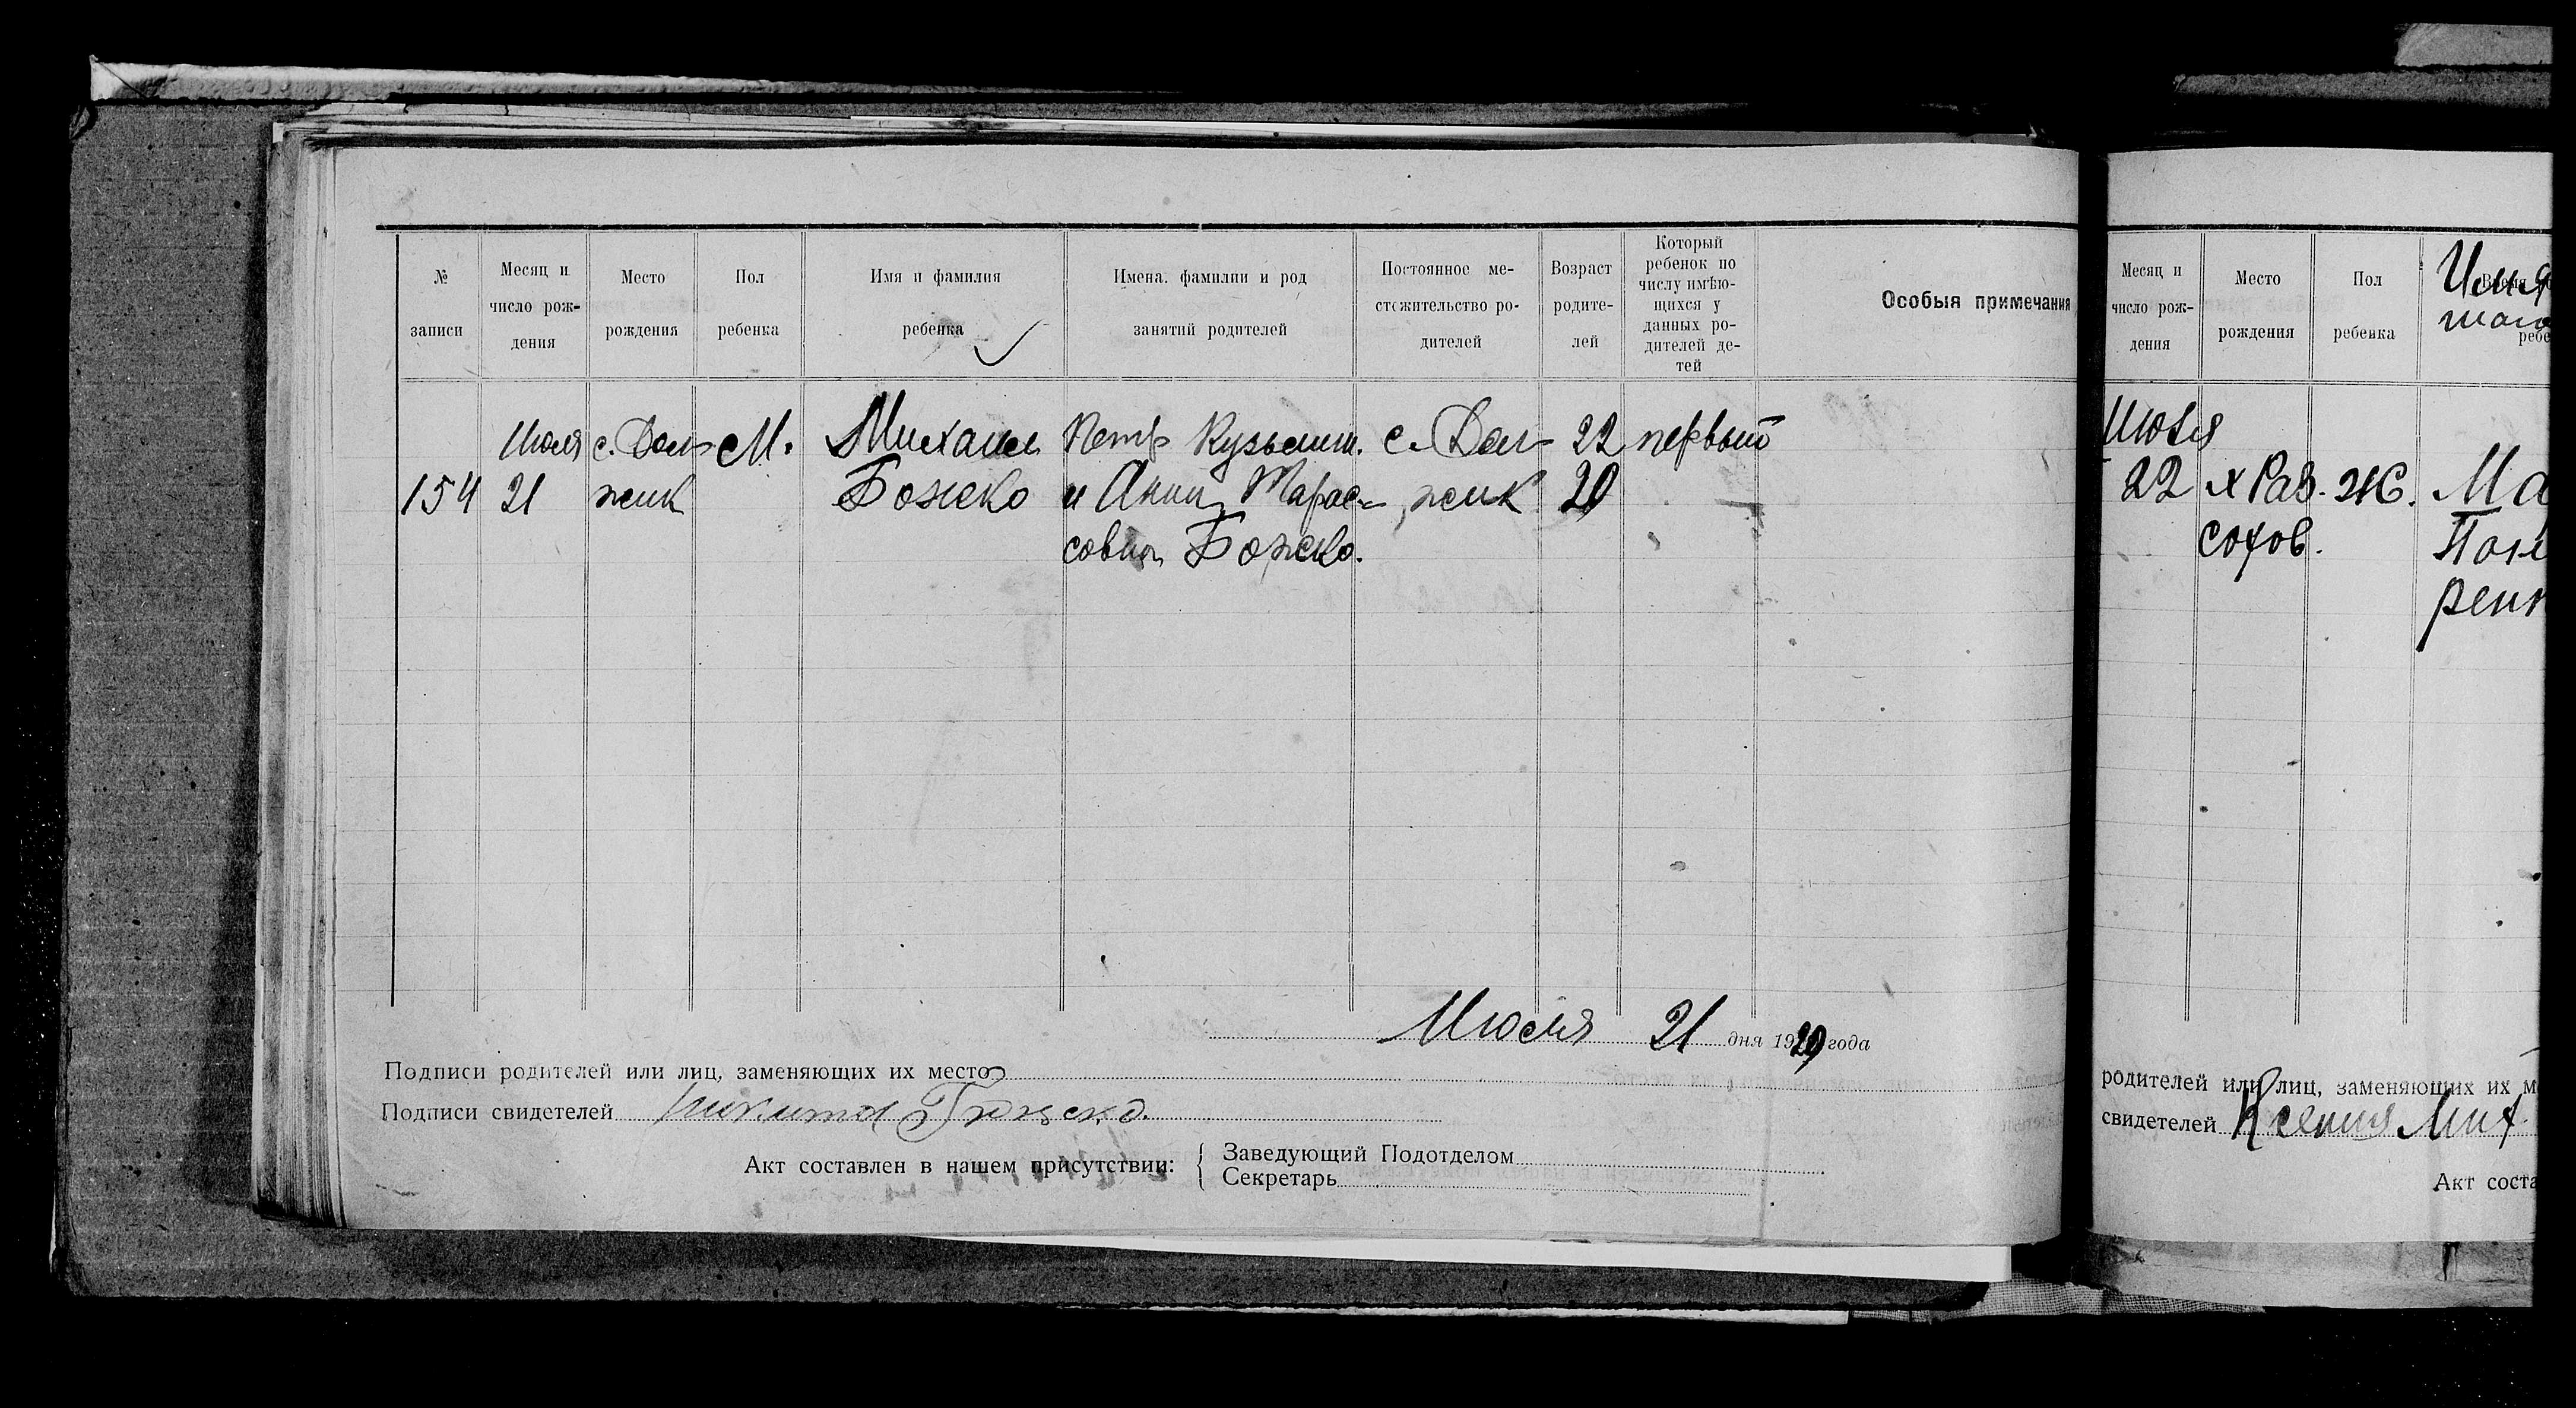 № записи
Месяц и число рождения
Место рождения
Пол ребенка
Имя и фамилия ребенка
Имена, фамилии и род занятий родителей
Постоянное местожительство родителей
Возраст родителей
Который ребенок по числу имѣющихся у данных родителей детей
Особыя примечания
Июля с. Дол- М. Михаил Петр Кузьмич. с. Дол- 22 первый
154 21 жик Божко и Анна Тарас- жик 20
совна Божко.
Июля 21 дня 1920 года
Подписи родителей или лиц, заменяющих их место
Подписи свидетелей Никита
Акт составлен в нашем присутствии:
Заведующий Подотделом
Секретарь
Месяц и число рождения
Место рождения
Пол ребенка
Июля
22 х Рав. Ж. Ма
сохов.
родителей или лиц, заменяющих их м
свидетелей Ксения Мих
Акт соста